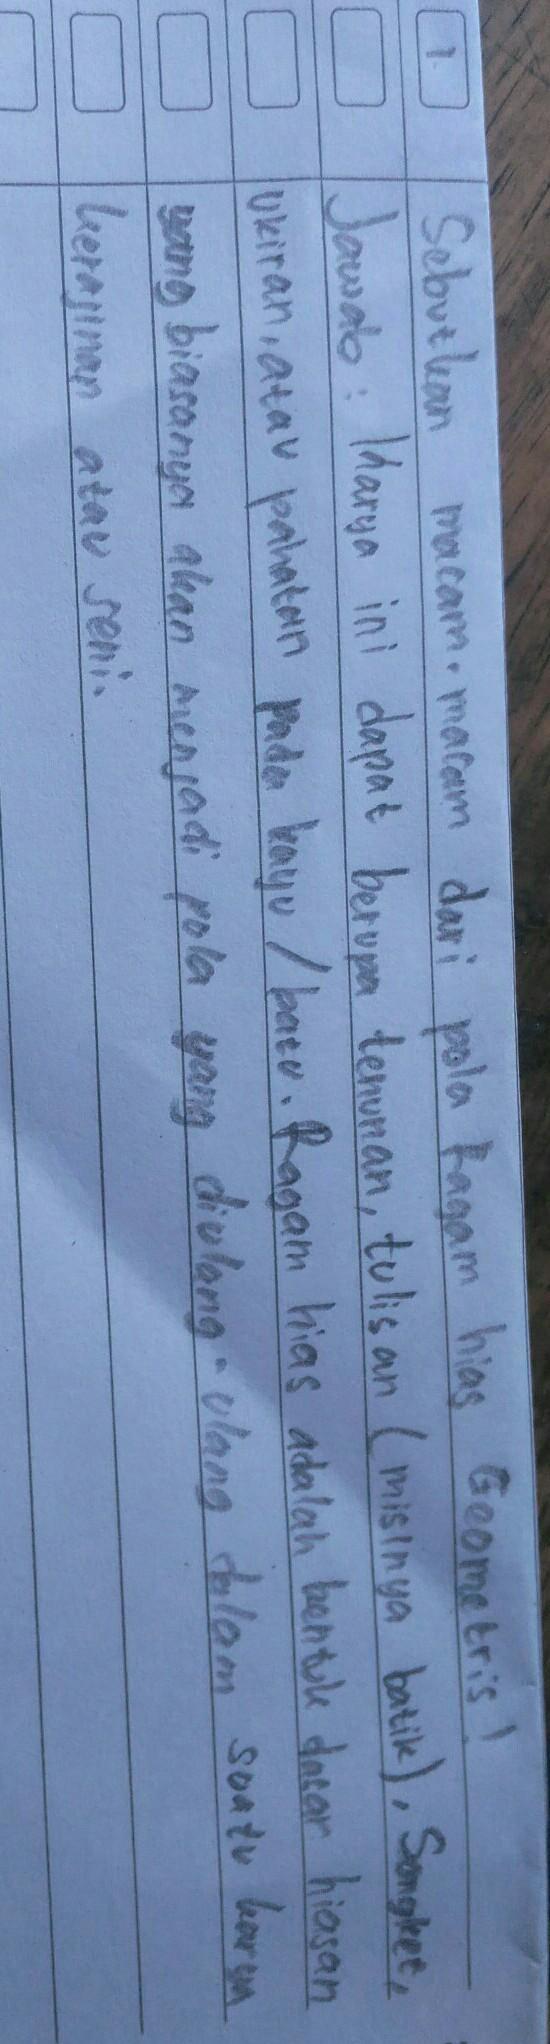 1. Sebutkan macam-macam dari pola Ragam hias Geometris!
Jawab : Karya ini dapat berupa tenunan, tulisan (mislnya batik), Songket,
Ukiran, atau pahatan pada kayu / batu. Ragam hias adalah bentuk dasar hiasan
yang biasanya akan menjadi pola yang diulang-ulang dalam suatu karya
kerajinan atau seni.